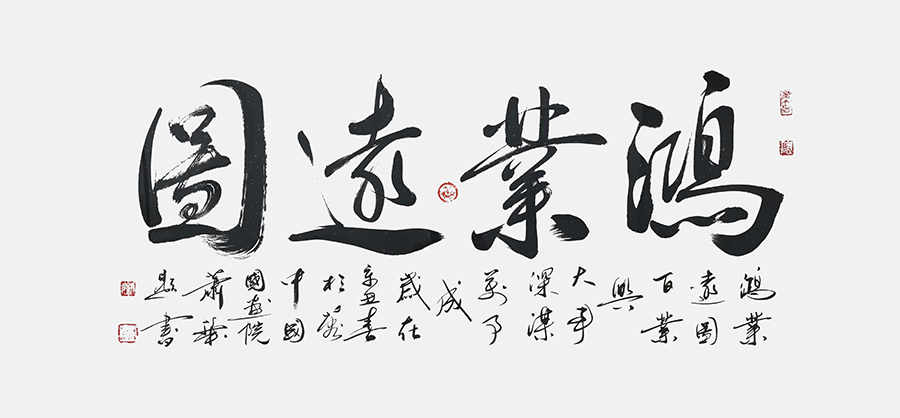 鴻業遠圖
鴻業
遠圖
百業
興
大
深謀
萬事
成
歲在
辛丑春
於
中國
國畫院
蕭
題書